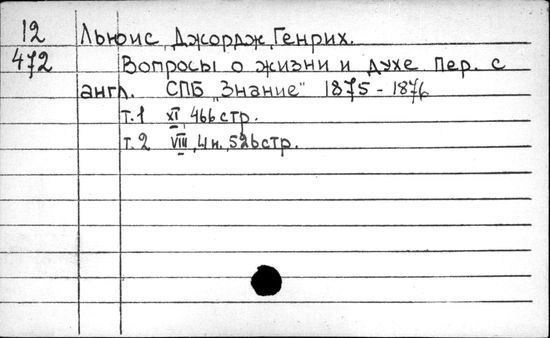 12 Льюис, Джордж Генрих.
472 Вопросы о жизни и духе Пер. с
англ. СПБ „Знание" 1875-1876
т.1 XI, 466 стр.
т.2 VIII, 4 н., 526 стр.